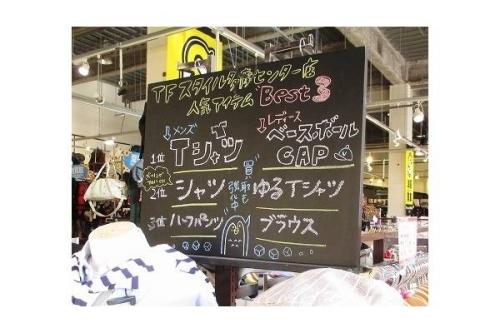 TFスタイル多摩センター店
人気アイテム Best 3
↓メンズ
1位 Tシャツ
2位 シャツ
3位 ハーフパンツ
買取も
強化中
↓レディース
ベースボール
CAP
ゆるTシャツ
ブラウス